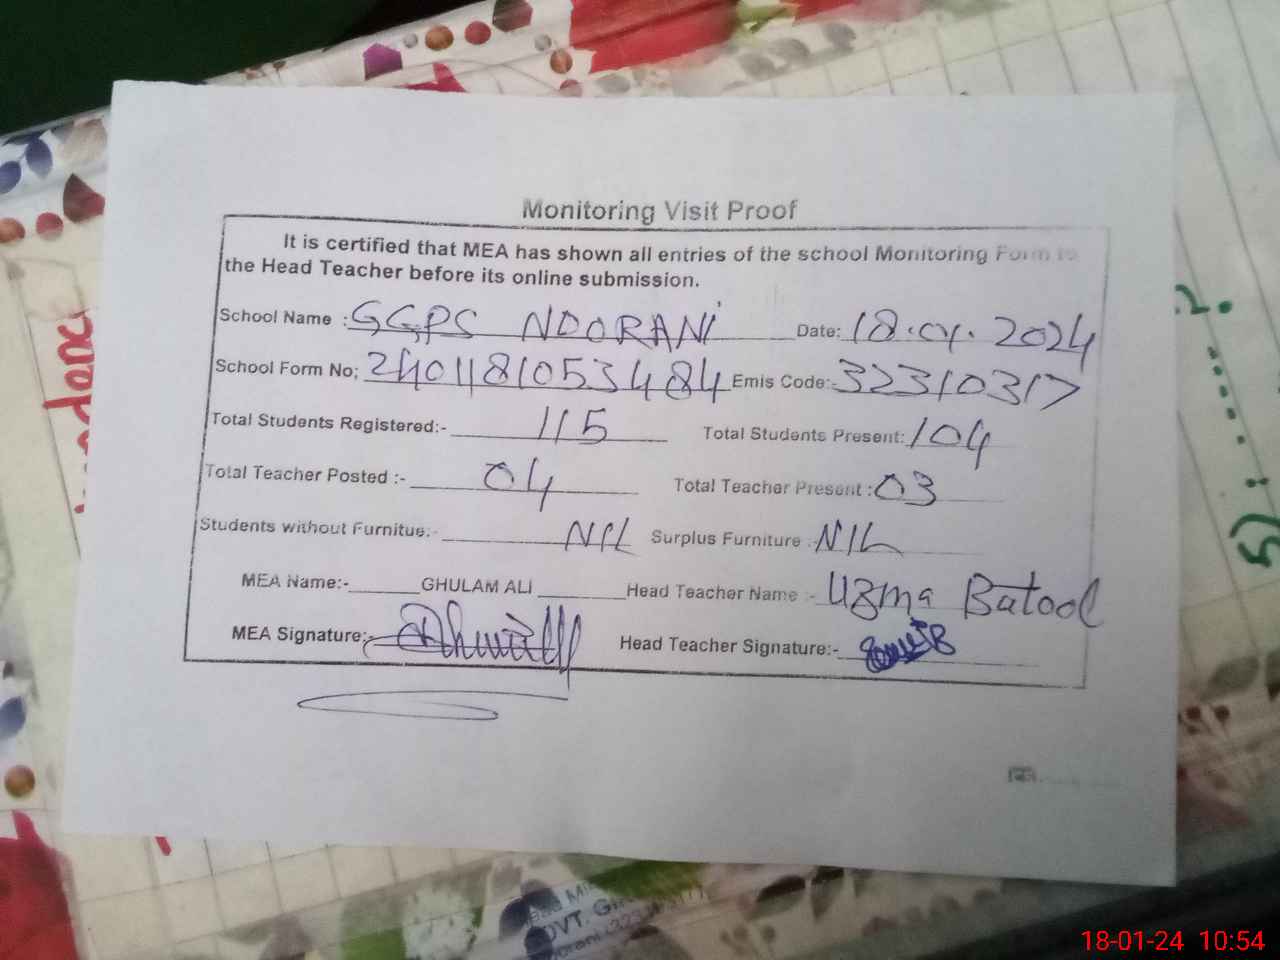 Monitoring Visit Proof
It is certified that MEA has shown all entries of the school Monitoring Form to
the Head Teacher before its online submission.
School Name : GGPS NOORANI Date: 18.01.2024
School Form No; 2401181053484 Emis Code:- 32310317
Total Students Registered:- 115 Total Students Present: 104
Total Teacher Posted :- 04 Total Teacher Present : 03
Students without Furnitue:- NIL Surplus Furniture : NIL
MEA Name:- GHULAM ALI Head Teacher Name :- Uzma Batool
MEA Signature:- Head Teacher Signature:-
18-01-24 10:54